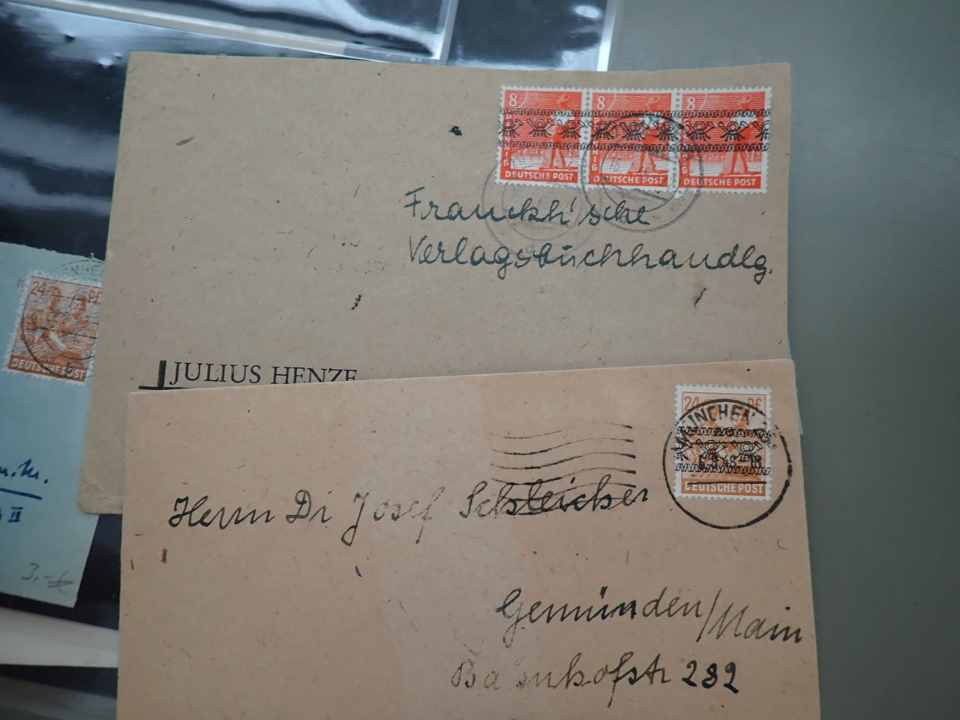 8 8 8
DEUTSCHE POST DEUTSCHE POST DEUTSCHE POST
Franckh'sche
Verlagsbuchhandlg.
24 Pf
DEUTSCHE POST
JULIUS HENZE
24 Pf
MÜNCHEN
DEUTSCHE POST
Herrn Dr Josef Schleicher
Gemünden/Main
Bahnhofstr 282
II
3.-